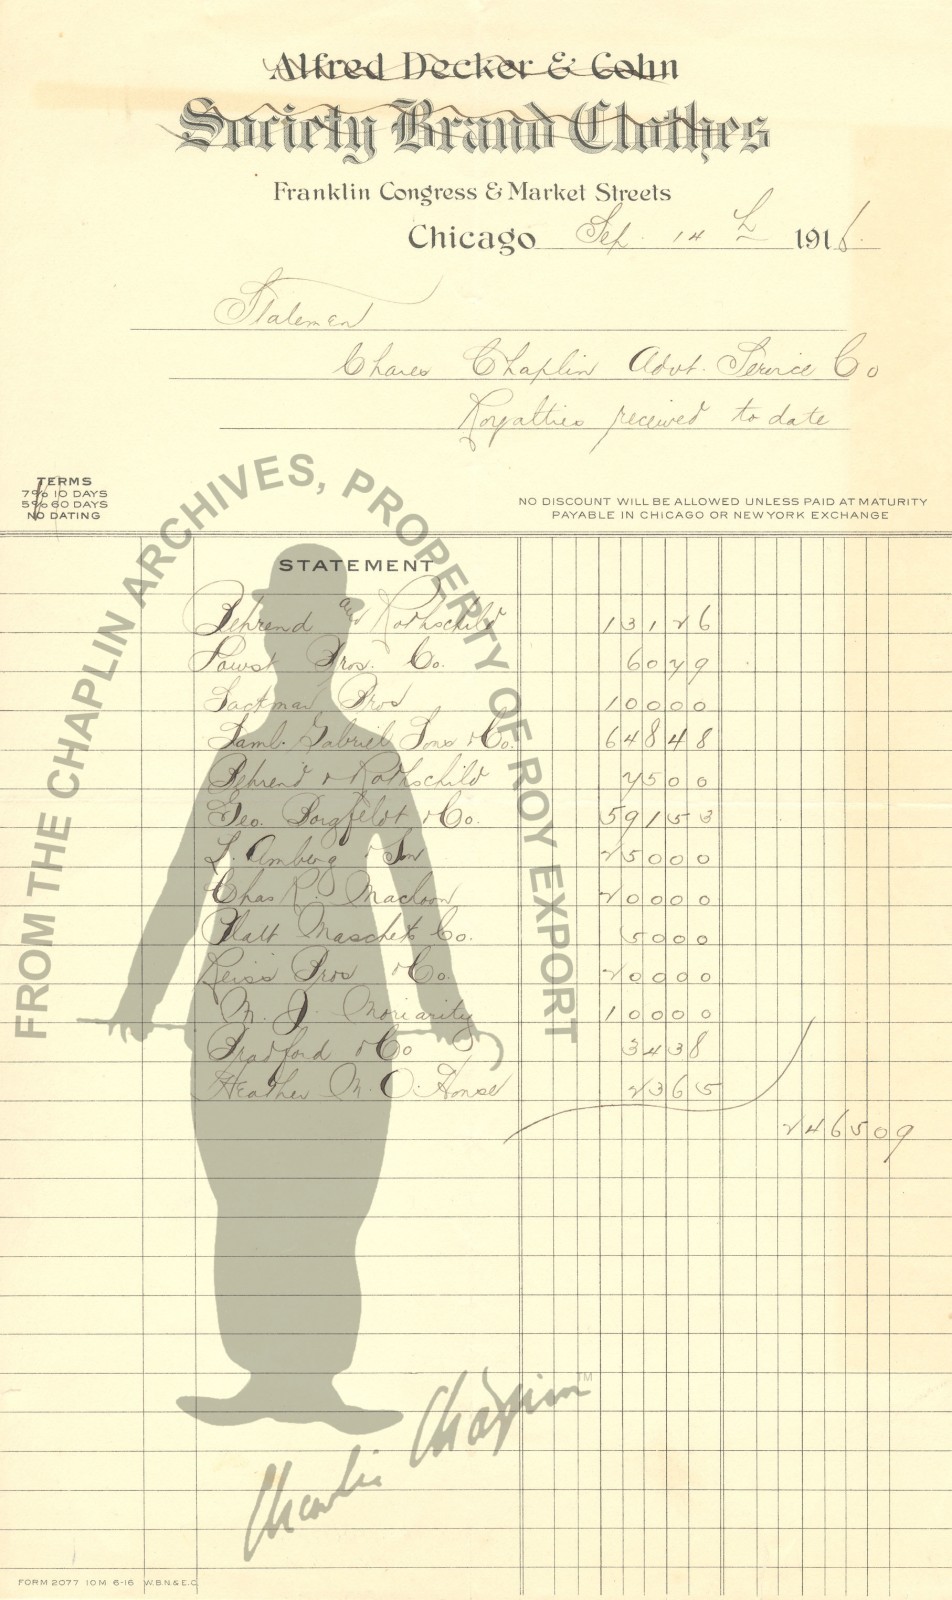 Alfred Decker & Cohn
Society Brand Clothes
Franklin Congress & Market Streets
Chicago Sep. 14 th 1916.
Statemen
Chares Chaplin Advt. Service Co
Royalties received to date
TERMS
7% 10 DAYS
5% 60 DAYS
NO DATING
NO DISCOUNT WILL BE ALLOWED UNLESS PAID AT MATURITY
PAYABLE IN CHICAGO OR NEW YORK EXCHANGE
FROM THE CHAPLIN ARCHIVES, PROPERTY OF ROY EXPORT
STATEMENT
Behrend and Rothschild 131 26
Bros. Co. 60 79
Bros 100 00
Samb. Gabriel Sons & Co. 648 48
Behrend & Rothschild 75 00
Geo. Borgfeldt & Co. 591 53
L. Amberg & Son 250 00
Chas R. Macloon 200 00
Platt Co. 50 00
Reiss Bros & Co. 200 00
M. J. Moriarity 100 00
Bradford & Co 34 38
Heather M. O. House 23 65
2465 09
Charlie Chaplin TM
FORM 2077 10M 6-16 W.B.N.& E.C.